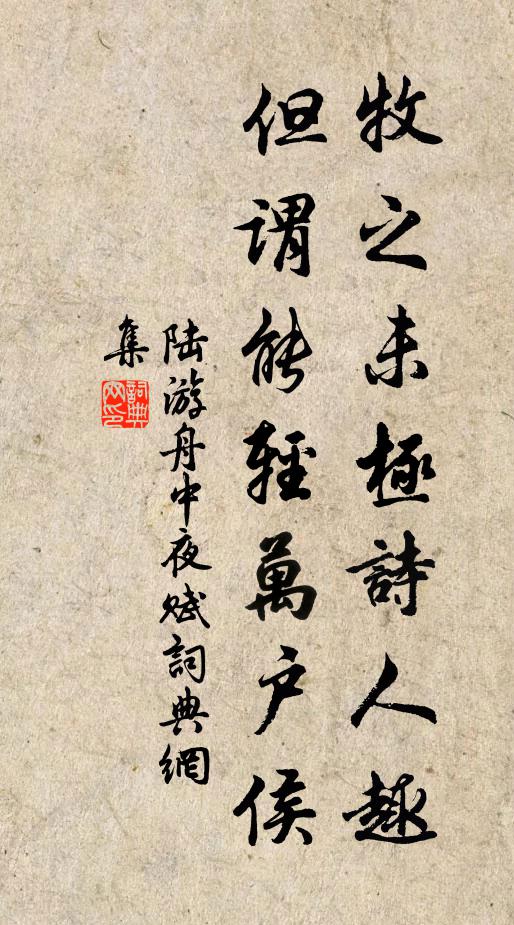 牧之未極詩人趣
但謂能輕萬戶侯
陸游舟中夜賦詞典網
集
詞典網印